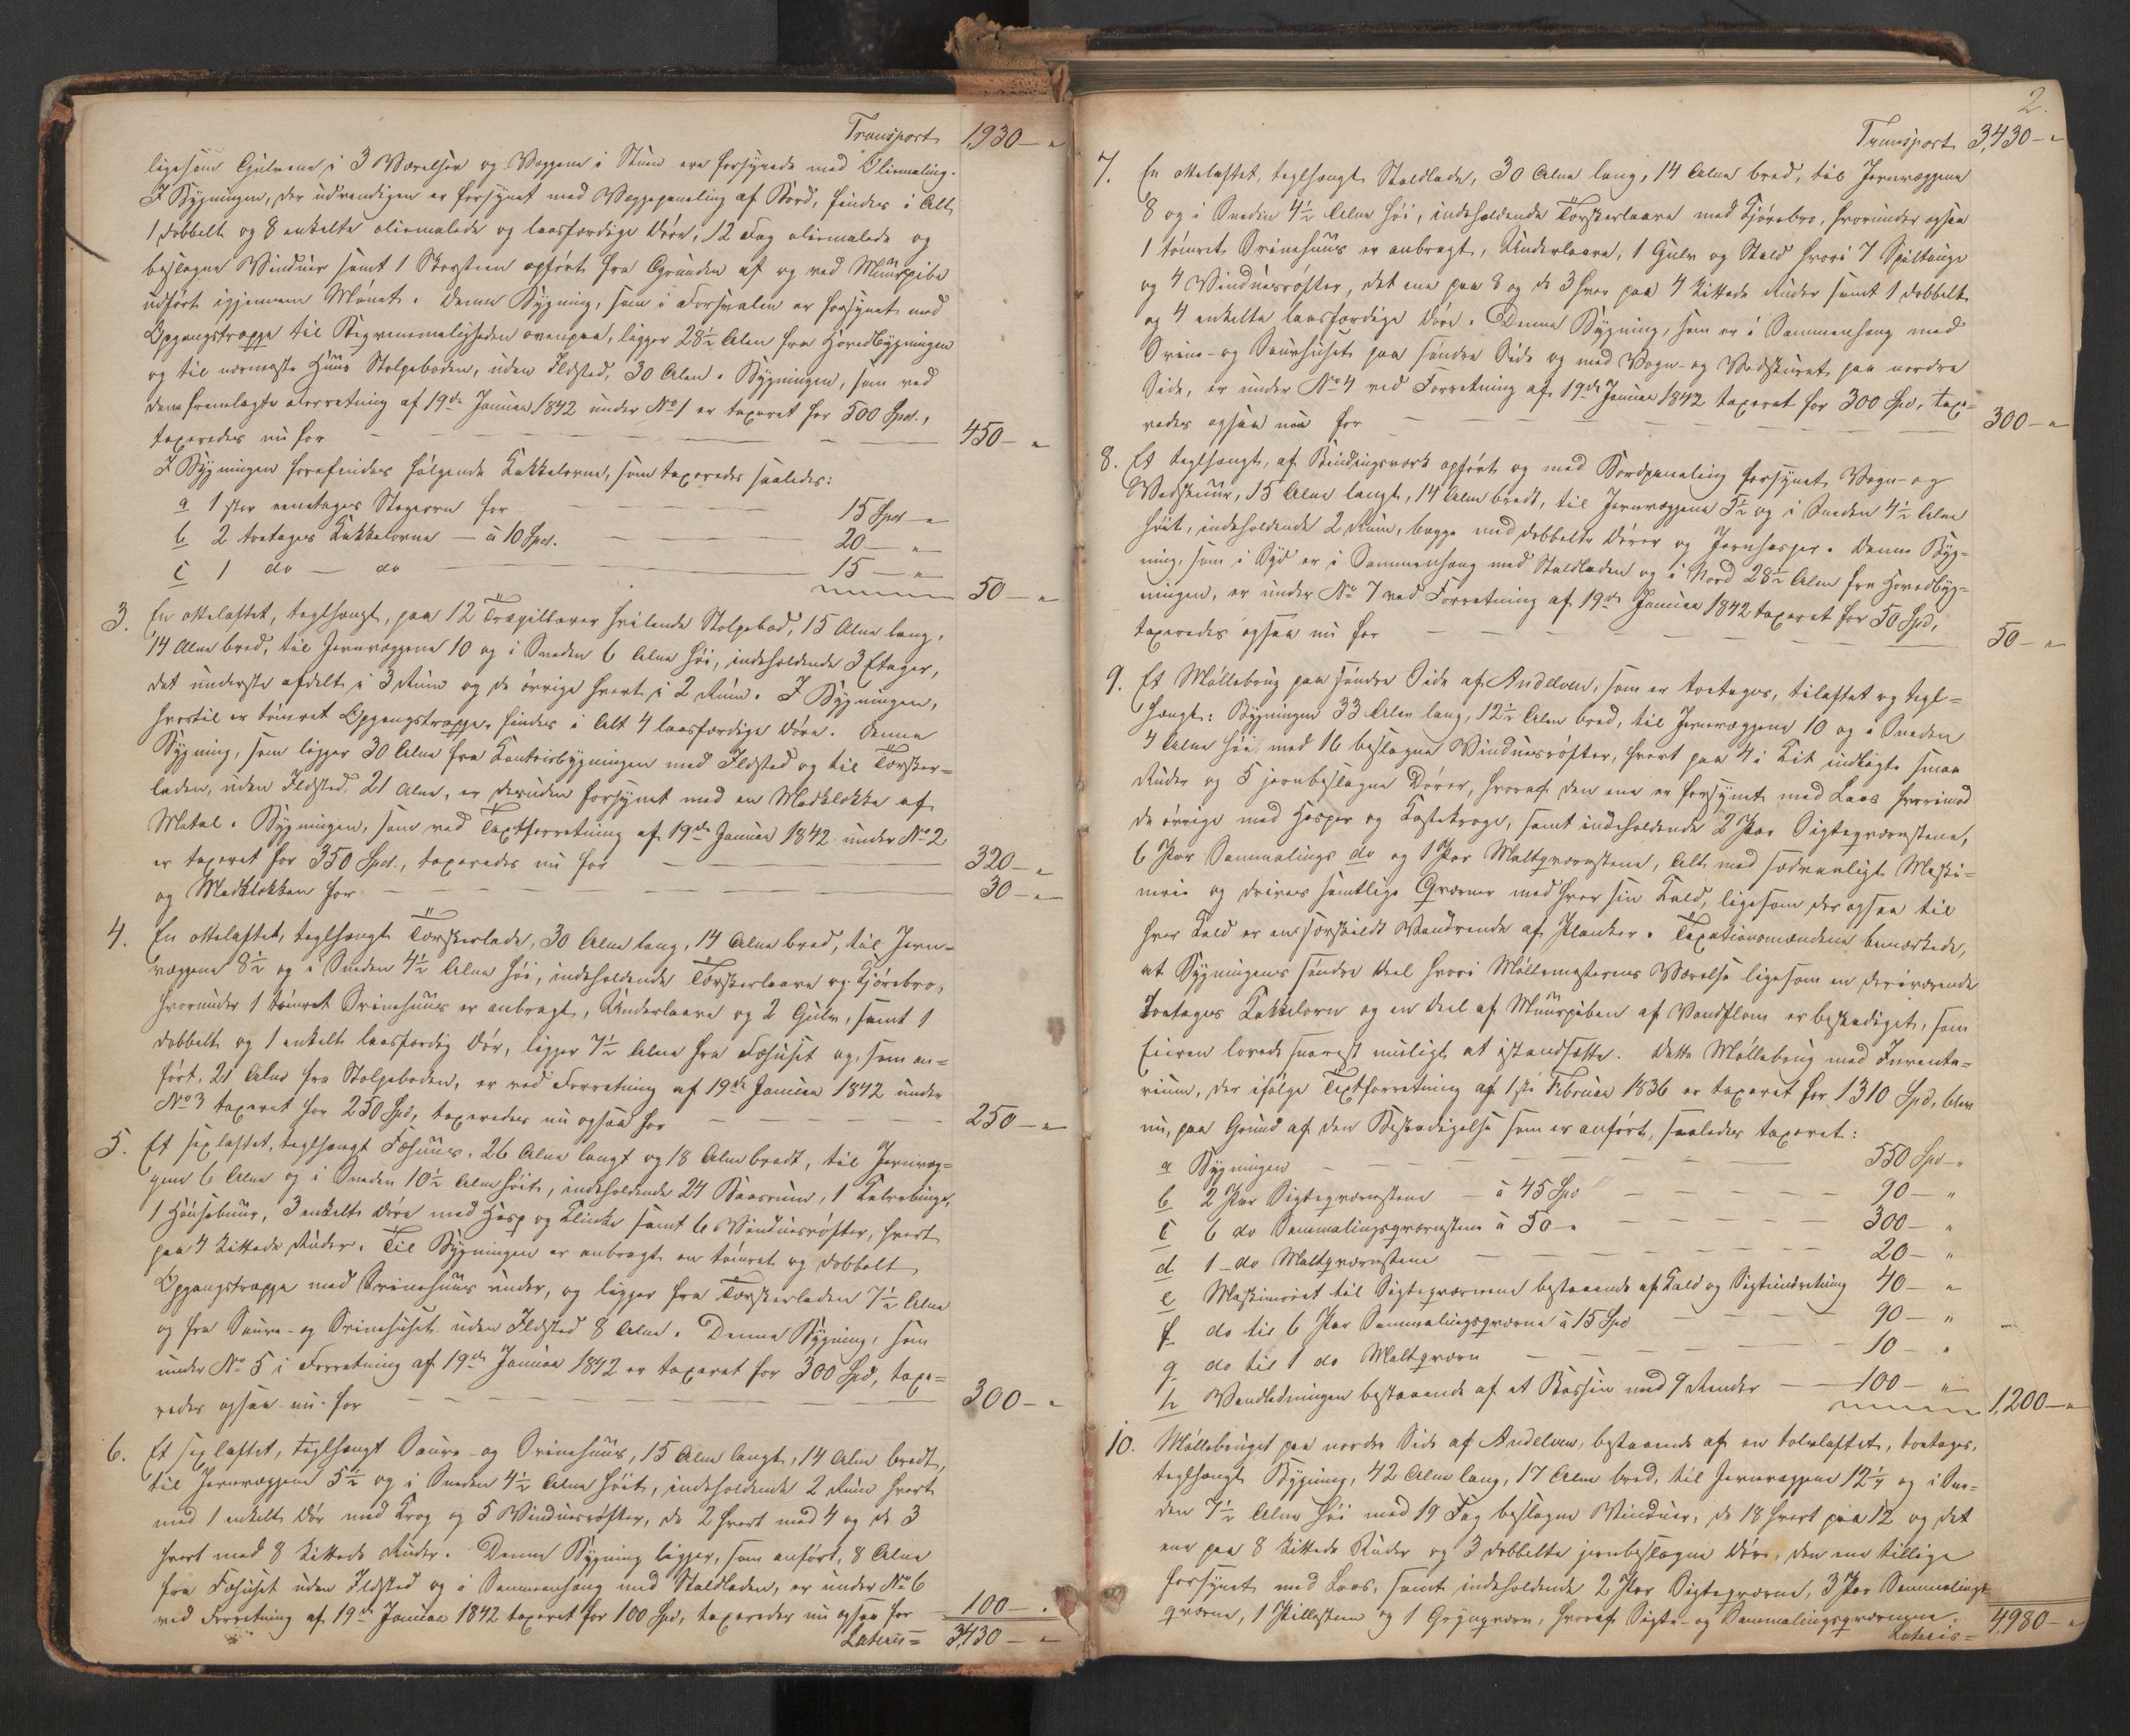 Transport 1,930 — "
ligesom Gulvene i 3 Værelser og Væggene i Stuen ere forsynede med Oliemaling.
I Bygningen, der udvendigen er forsynet med Væggepaneling af Bord, findes i Alt
1 dobbelt og 8 enkelte oliemalede og laasfærdige Døre, 12 Fag oliemalede og
beslagne Vinduer samt 1 Skorsteen opført fra Grunden af og ved Muurpibe
udført igjennem Mønet. Denne Bygning, som i Forsvalen er forsynet med
Opgangstrappe til Beqvemmeligheden ovenpaa, ligger 28½ Alen fra Hovedbygningen
og til nærmeste Huus Stolpeboden, uden Ildsted, 30 Alen. Bygningen, som ved
den fremlagte Forretning af 19de Januar 1842 under No 1 er taxeret for 500 Spd.,
taxeredes nu for — 450 — "
I Bygningen forefindes følgende Kakkelovne, som taxeredes saaledes:
a 1 stor eenetages Stegeovn for — 15 Spd — "
b 2 toetages Kakkelovne — à 10 Spd. — 20 — "
c 1 do — do — 15 — "
50 — "
3. En ottelaftet, teglhængt, paa 12 Træpillarer hvilende Stolpebod, 15 Alen lang,
14 Alen bred, til Jernvæggene 10 og i Sneden 6 Alen høi, indeholdende 3 Etager,
det underste afdelt i 3 Rum og de øvrige hvert i 2 Rum. I Bygningen,
hvortil er tømret Opgangstrappe, findes i Alt 4 laasfærdige Døre. Denne
Bygning, som ligger 30 Alen fra Contoirbygningen med Ildsted og til Tærsker-
laden, uden Ildsted, 21 Alen, er desuden forsynet med en Madklokke af
Metal. Bygningen, som ved Taxtforretning af 19de Januar 1842 under No 2
er taxeret for 350 Spd., taxeredes nu for — 320 — "
og Madklokken for — 30 — "
4. En ottelaftet, teglhængt Tærskerlade, 30 Alen lang, 14 Alen bred, til Jern-
væggene 8½ og i Sneden 4½ Alen høi, indeholdende Tærskerlaave og Kjørebro,
hvorunder 1 tømret Svinehuus er anbragt, Underlaave og 2 Gulv, samt 1
dobbelt og 1 enkelt laasfærdig Dør, ligger 7½ Alen fra Fæhuset og, som an-
ført, 21 Alen fra Stolpeboden, er ved Forretning af 19de Januar 1842 under
No 3 taxeret for 250 Spd, taxeredes nu ogsaa for — 250 — "
5. Et sexlaftet, teglhængt Fæhuus, 26 Alen langt og 18 Alen bredt, til Jernvæg-
gene 6 Alen og i Sneden 10½ Alen høit, indeholdende 24 Baasrum, 1 Kalvebinge,
1 Hønsebuur, 3 enkelte Døre med Hasp og Klinke samt 6 Vinduesrøster, hvert
paa 4 kittede Ruder. Til Bygningen er anbragt en tømret og dobbelt
Opgangstrappe med Svinehuus under, og ligger fra Tærskerladen 7½ Alen
og fra Saue- og Svinehuset uden Ildsted 8 Alen. Denne Bygning, som
under No 5 i Forretning af 19de Januar 1842 er taxeret for 300 Spd, taxe-
redes ogsaa nu for — 300 — "
6. Et sexlaftet, teglhængt Saue- og Svinehuus, 15 Alen langt, 14 Alen bredt,
til Jernvæggene 5½ og i Sneden 4½ Alen høit, indeholdende 2 Rum hvert
med 1 enkelt Dør med Krog og 5 Vinduesrøster, de 2 hvert med 4 og de 3
hvert med 8 kittede Ruder. Denne Bygning ligger, som anført, 8 Alen
fra Fæhuset uden Ildsted og i Sammenhæng med Staldladen, er under No 6
ved Forretning af 19de Januar 1842 taxeret for 100 Spd, taxeredes nu ogsaa for 100 — "
Lateris = 3,430 — "
2.
Transport 3,430 — "
7. En ottelaftet, teglhængt Staldlade, 30 Alen lang, 14 Alen bred, til Jernvæggene
8 og i Sneden 4½ Alen høi, indeholdende Tærskerlaave med Kjørebro, hvorunder ogsaa
1 tømret Svinehuus er anbragt, Underlaave, 1 Gulv og Stald hvori 7 Spiltauge
og 4 Vinduesrøster, det ene paa 8 og de 3 hver paa 4 kittede Ruder samt 1 dobbelt
og 4 enkelte laasfærdige Døre. Denne Bygning, som er i Sammenhæng med
Svine- og Sauehuset paa søndre Side og med Vogn- og Vedskuret paa nordre
Side, er under No 4 ved Forretning af 19de Januar 1842 taxeret for 300 Spd, taxe-
redes ogsaa nu for — 300 — "
8. Et teglhængt, af Bindingsværk opført og med Bordpaneling forsynet Vogn- og
Vedskuur, 15 Alen langt, 14 Alen bredt, til Jernvæggene 5½ og i Sneden 4½ Alen
høit, indeholdende 2 Rum, begge med dobbelte Dører og Jernhasper. Denne Byg-
ning, som i Syd er i Sammenhæng med Staldladen og i Nord 28½ Alen fra Hovedbyg-
ningen, er under No 7 ved Forretning af 19de Januar 1842 taxeret for 50 Spd,
taxeredes ogsaa nu for — 50 — "
9. Et Møllebrug paa søndre Side af Andelven, som er toetages, tilaftet og tegl-
hængt: Bygningen 33 Alen lang, 12½ Alen bred, til Jernvæggene 10 og i Sneden
4 Alen høi, med 16 beslagne Vinduesrøster, hvert paa 4 i Kit indlagte smaa
Ruder og 5 jernbeslagne Dører, hvoraf den ene er forsynet med Laas hvorimod
de øvrige med Hasper og Kastekroge, samt indeholdende 2 Par Sigteqværnstene,
6 Par Sammalings do og 1 Par Maltqværnstene, Alt med sædvanligt Maski-
neri og drives samtlige Qværner med hver sin Kald, ligesom der ogsaa til
hver Kald er en særskildt Vandrende af Planker. Taxationsmændene bemærkede,
at Bygningens søndre Deel hvori Møllemesterens Værelse ligesom en deriværende
toetages Kakkelovn og en Deel af Muurpiben af Vandflom er beskadiget, som
Eieren lovede snarest muligt at istandsætte. Dette Møllebrug med Inventa-
rium, der ifølge Taxtforretning af 1ste Februar 1836 er taxeret for 1310 Spd, blev
nu, paa Grund af den Beskadigelse som er anført, saaledes taxeret:
a Bygningen — 550 Spd — "
b 2 Par Sigteqværnstene — à 45 Spd — 90 — "
c 6 do Sammalingsqværnstene à 50 — " — 300 — "
d 1 — do Maltqværnstene — 20 — "
e Maskineriet til Sigteqværnene bestaaende af Kald og Sigteindretning 40 — "
f do til 6 Par Sammalingsqværne à 15 Spd — 90 — "
g do til 1 do Maltqværn — 10 — "
h Vandledningen bestaaende af et Bassin med 9 Render — 100 — " 1,200 — "
10. Møllebruget paa nordre Side af Andelven, bestaaende af en tolvlaftet, toetages,
teglhængt Bygning, 42 Alen lang, 17 Alen bred, til Jernvæggene 12¼ og i Sne-
den 7½ Alen høi med 19 Fag beslagne Vinduer, de 18 hvert paa 12 og det
ene paa 8 kittede Ruder og 3 dobbelte jernbeslagne Døre, den ene tillige
forsynet med Laas, samt indeholdende 2 Par Sigteqværne, 3 Par Sammalings-
qværne, 1 Pillesteen og 1 Grynqværn, hvoraf Sigte- og Sammalingsqværnene
Lateris = 4,980 — "